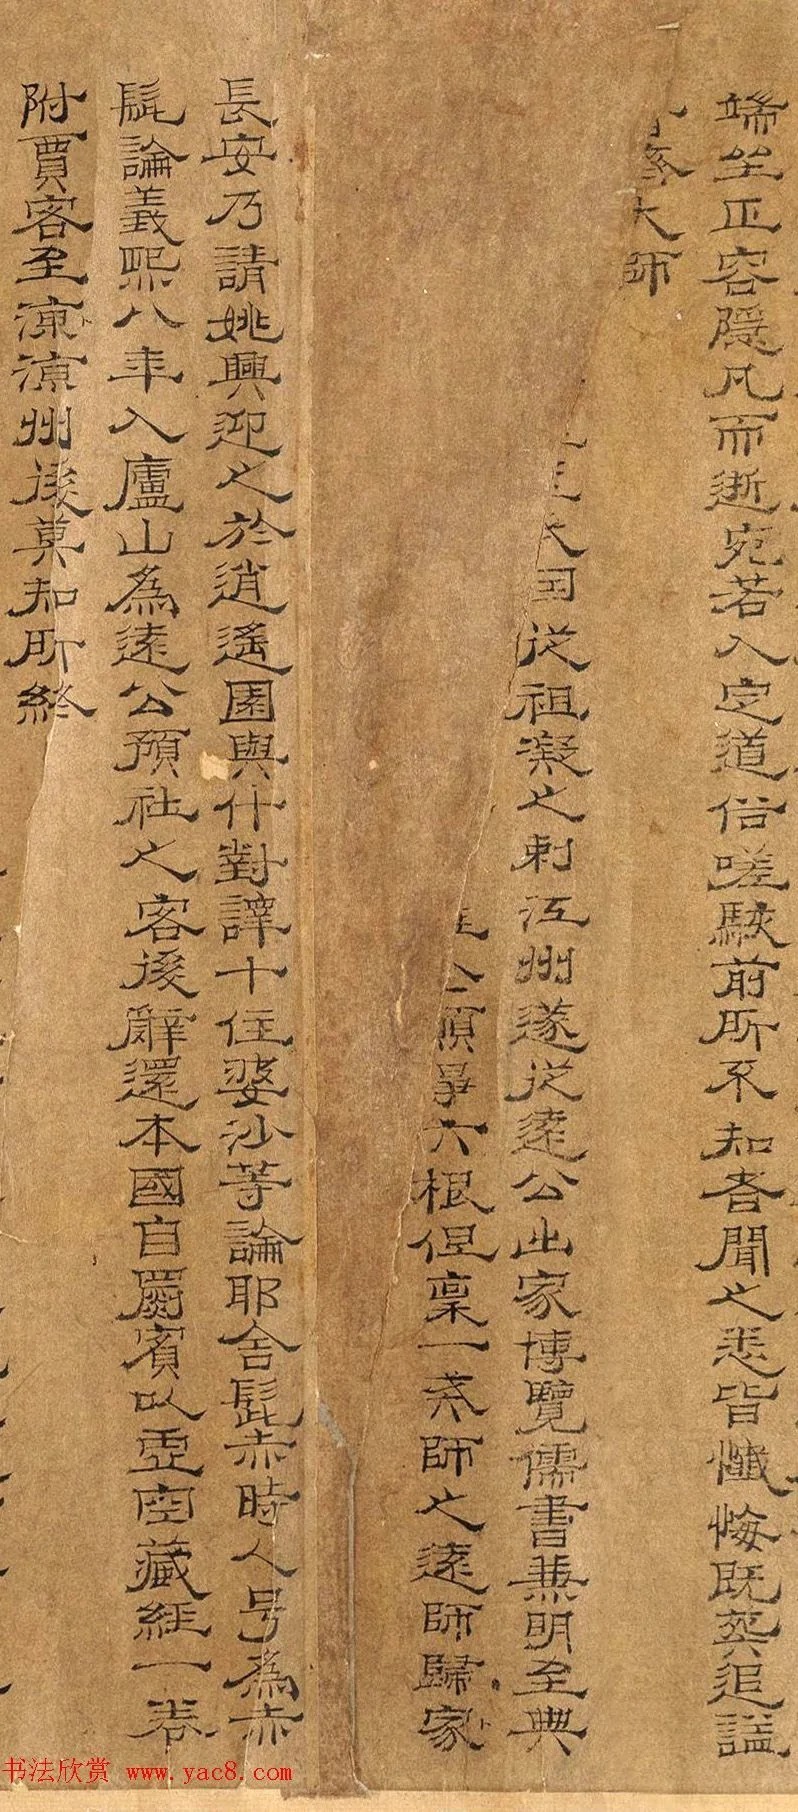 端坐正容隱几而逝宛若入定道俗嗟駭前所不知者聞之悉皆懺悔既葬追謚
大師
国从祖凝之刺江州遂从遠公出家博覽儒書兼明至典
六根但稟一炁師之遠師歸家
長安乃請姚興迎之於逍遙園與什對譯十住婆沙等論耶舍髭赤時人号為赤
髭論義熙八年入廬山為遠公預社之客後辭還本國自罽賓以虛空藏經一卷
附賈客至凉凉州後莫知所終
书法欣赏 www.yac8.com